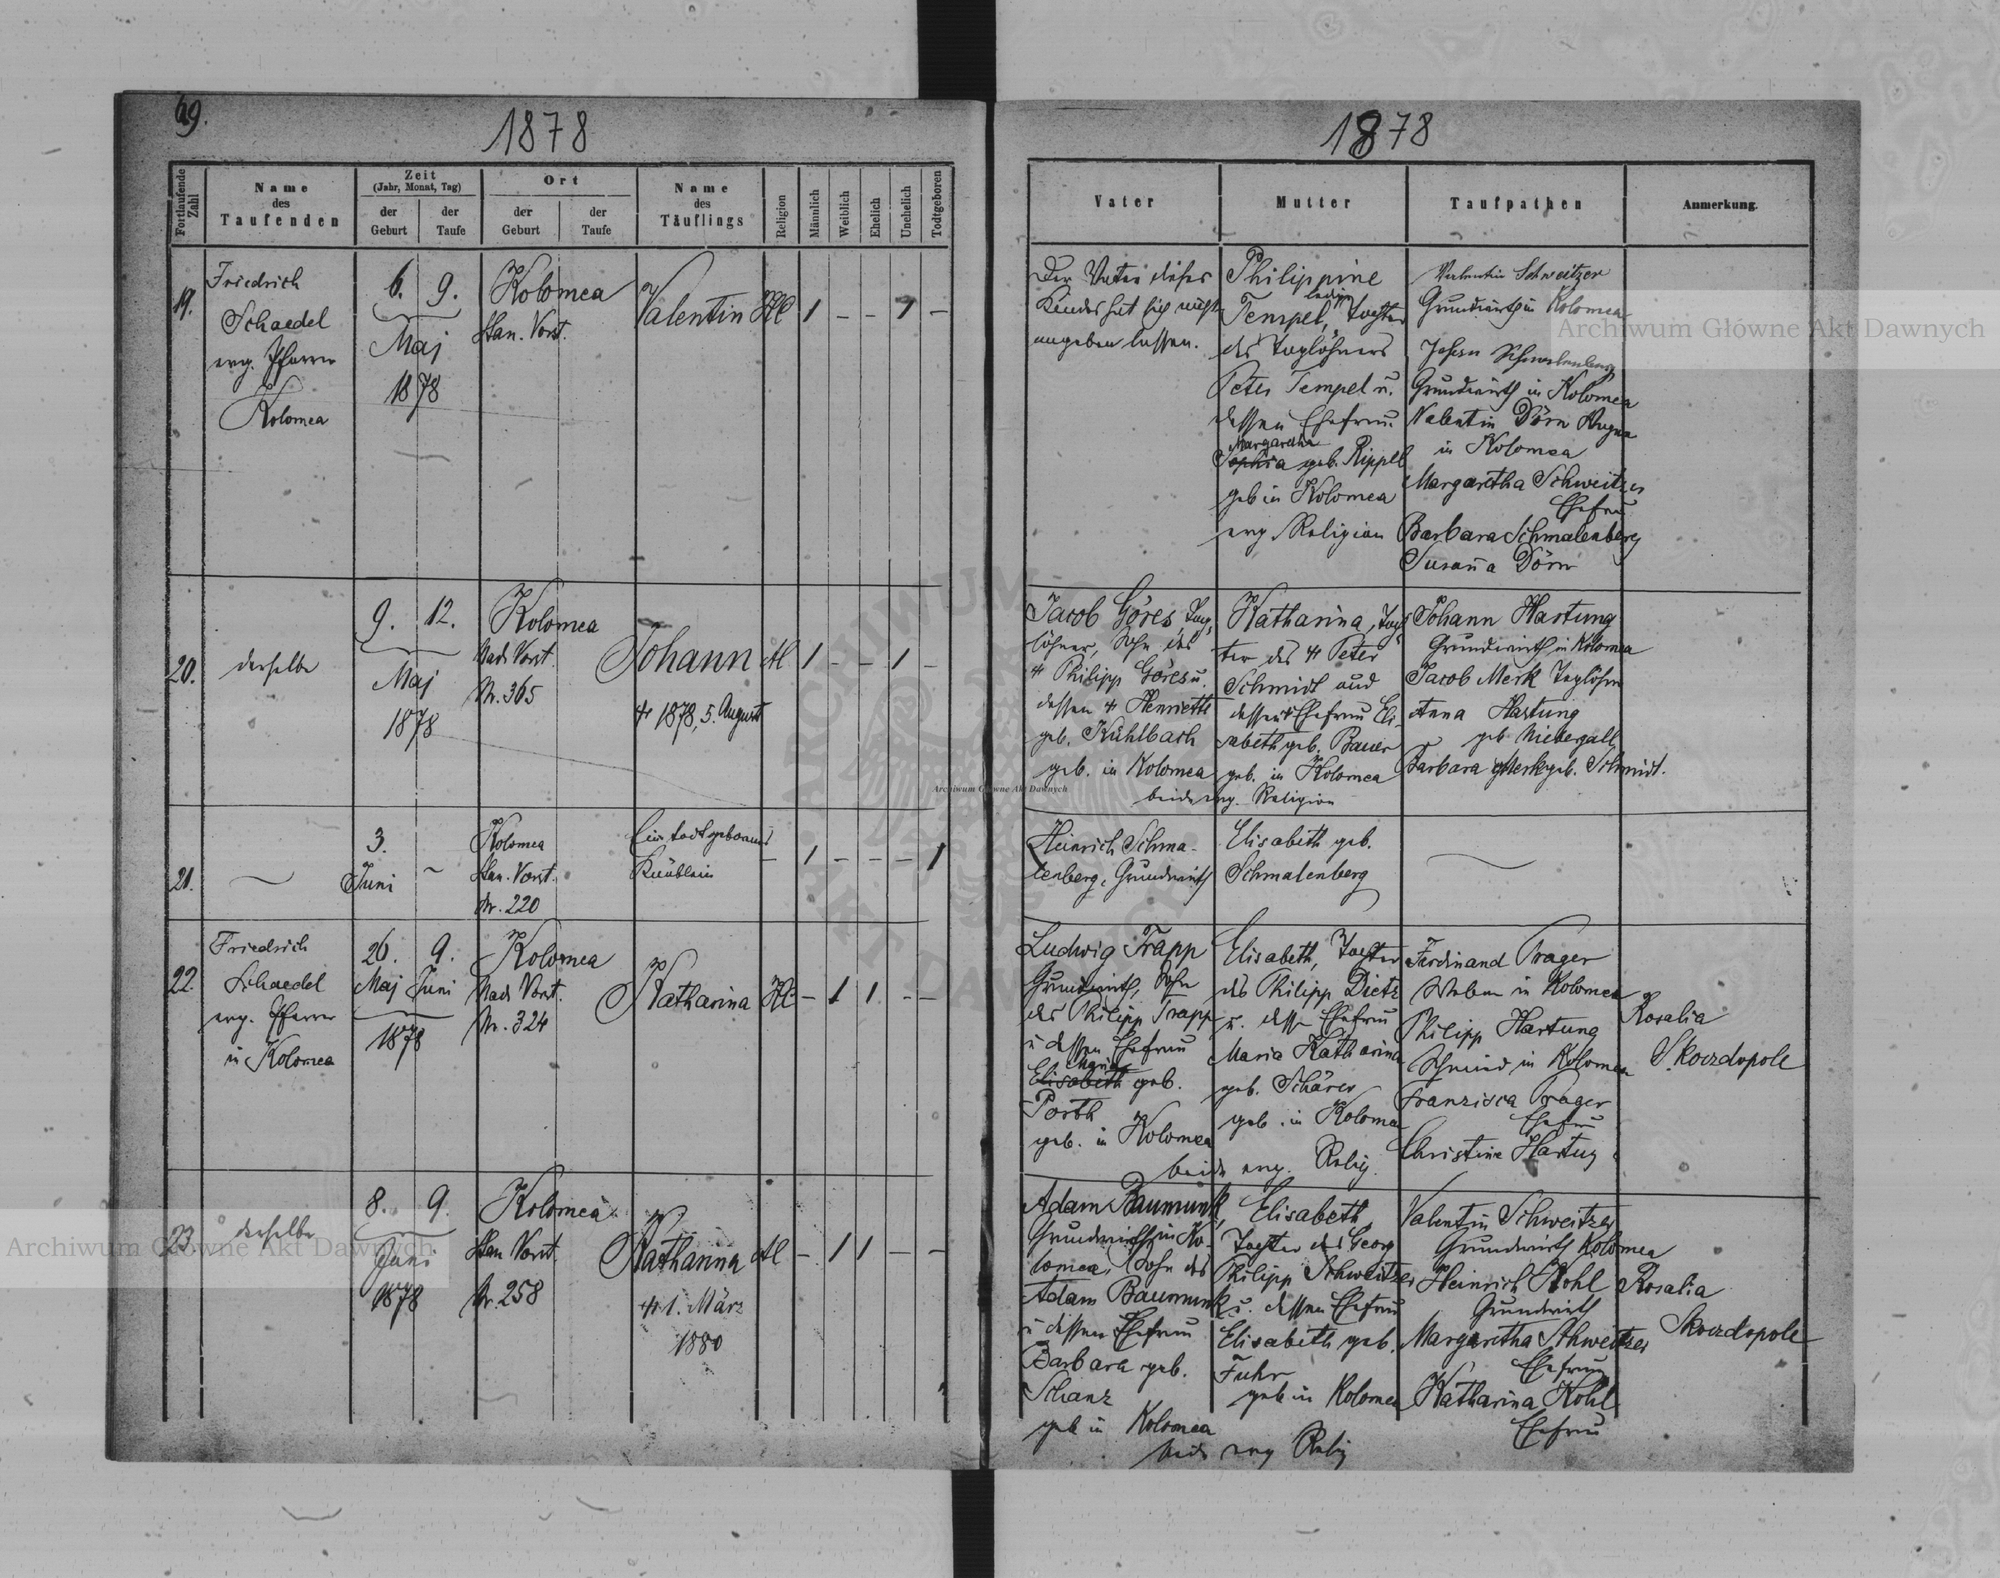 69.
1878
1878
Fortlaufende Zahl
Name
des
Taufenden
Zeit
(Jahr, Monat, Tag)
der
Geburt
der
Taufe
Ort
der
Geburt
der
Taufe
Name
des
Täuflings
Religion
Männlich
Weiblich
Ehelich
Unehelich
Todtgeboren
Vater
Mutter
Taufpathen
Anmerkung.
19.
Friedrich
Schaedel
evg. Pfarrer
Kolomea
6. 9.
Maj
1878
Kolomea
Stan. Vorst.
Valentin
1 - - 1 -
Der Vater dieses
Kindes hat sich nicht
angeben lassen.
Philippine
ledige
Tempel, Tochter
des Taglöhners
Peter Tempel u.
dessen Ehefrau
Margaretha
Sophia geb. Rippel
geb in Kolomea
evg Religion
Valentin Schweitzer
Grundwirth in Kolomea
Johann Schmalenberg
Grundwirth in Kolomea
Valentin Dörn
in Kolomea
Margaretha Schweitzer
Ehefrau
Barbara Schmalenberg
Susaña Dörn
20.
derselbe
9. 12.
Maj
1878
Kolomea
Nad. Vorst.
Nr. 365
Johann
1878, 5. August
1 - - 1 -
Jacob Göres, Tag-
löhner, Sohn des
Philipp Göres u.
dessen Henriette
geb. Kühlbach
geb. in Kolomea
Katharina, Toch-
ter des Peter
Schmidt und
dessen Ehefrau Eli-
sabeth geb. Bauer
geb. in Kolomea
beide evg. Religion
Johann Hartung
Grundwirth in Kolomea
Jacob Merk Taglöhner
Anna Hartung
geb Niebergall
Barbara Merk geb. Schmidt.
21.
3.
Juni
Kolomea
Stan. Vorst.
Nr. 220
Ein todtgeborenes
Knäblein
- 1 - - - 1
Heinrich Schma-
lenberg, Grundwirth
Elisabeth geb.
Schmalenberg
22.
Friedrich
Schaedel
evg. Pfarrer
in Kolomea
26. 9.
Maj Juni
1878
Kolomea
Nad. Vorst.
Nr. 324
Katharina
- 1 1 - -
Ludwig Trapp
Grundwirth, Sohn
des Philipp Trapp
u dessen Ehefrau
Maria
Elisabeth geb.
Porth
geb. in Kolomea
Elisabeth, Tochter
des Philipp Dietz
u. dessen Ehefrau
Maria Katharina
geb. Schärer
geb. in Kolomea
beide evg. Relig.
Ferdinand Prager
Weber in Kolomea
Philipp Hartung
Schmied in Kolomea
Franzisca Prager
Ehefrau
Christine Hartung
Rosalia
Skorzdopole
23.
derselbe
8. 9.
Juni
1878
Kolomea
Stan. Vorst.
Nr. 258
Katharina
1. März
1880
- 1 1 - -
Adam Baumunk,
Grundwirth in Ko-
lomea, Sohn des
Adam Baumunk
u dessen Ehefrau
Barbara geb.
Schanz
geb in Kolomea
Elisabeth
Tochter des Georg
Philipp Schweitzer
u. dessen Ehefrau
Elisabeth geb.
Fuhr
geb in Kolomea
beide evg Relig
Valentin Schweitzer
Grundwirth Kolomea
Heinrich Kohl
Grundwirth
Margaretha Schweitzer
Ehefrau
Katharina Kohl
Ehefrau
Rosalia
Skorzdopole
Archiwum Główne Akt Dawnych
Archiwum Główne Akt Dawnych
Archiwum Główne Akt Dawnych